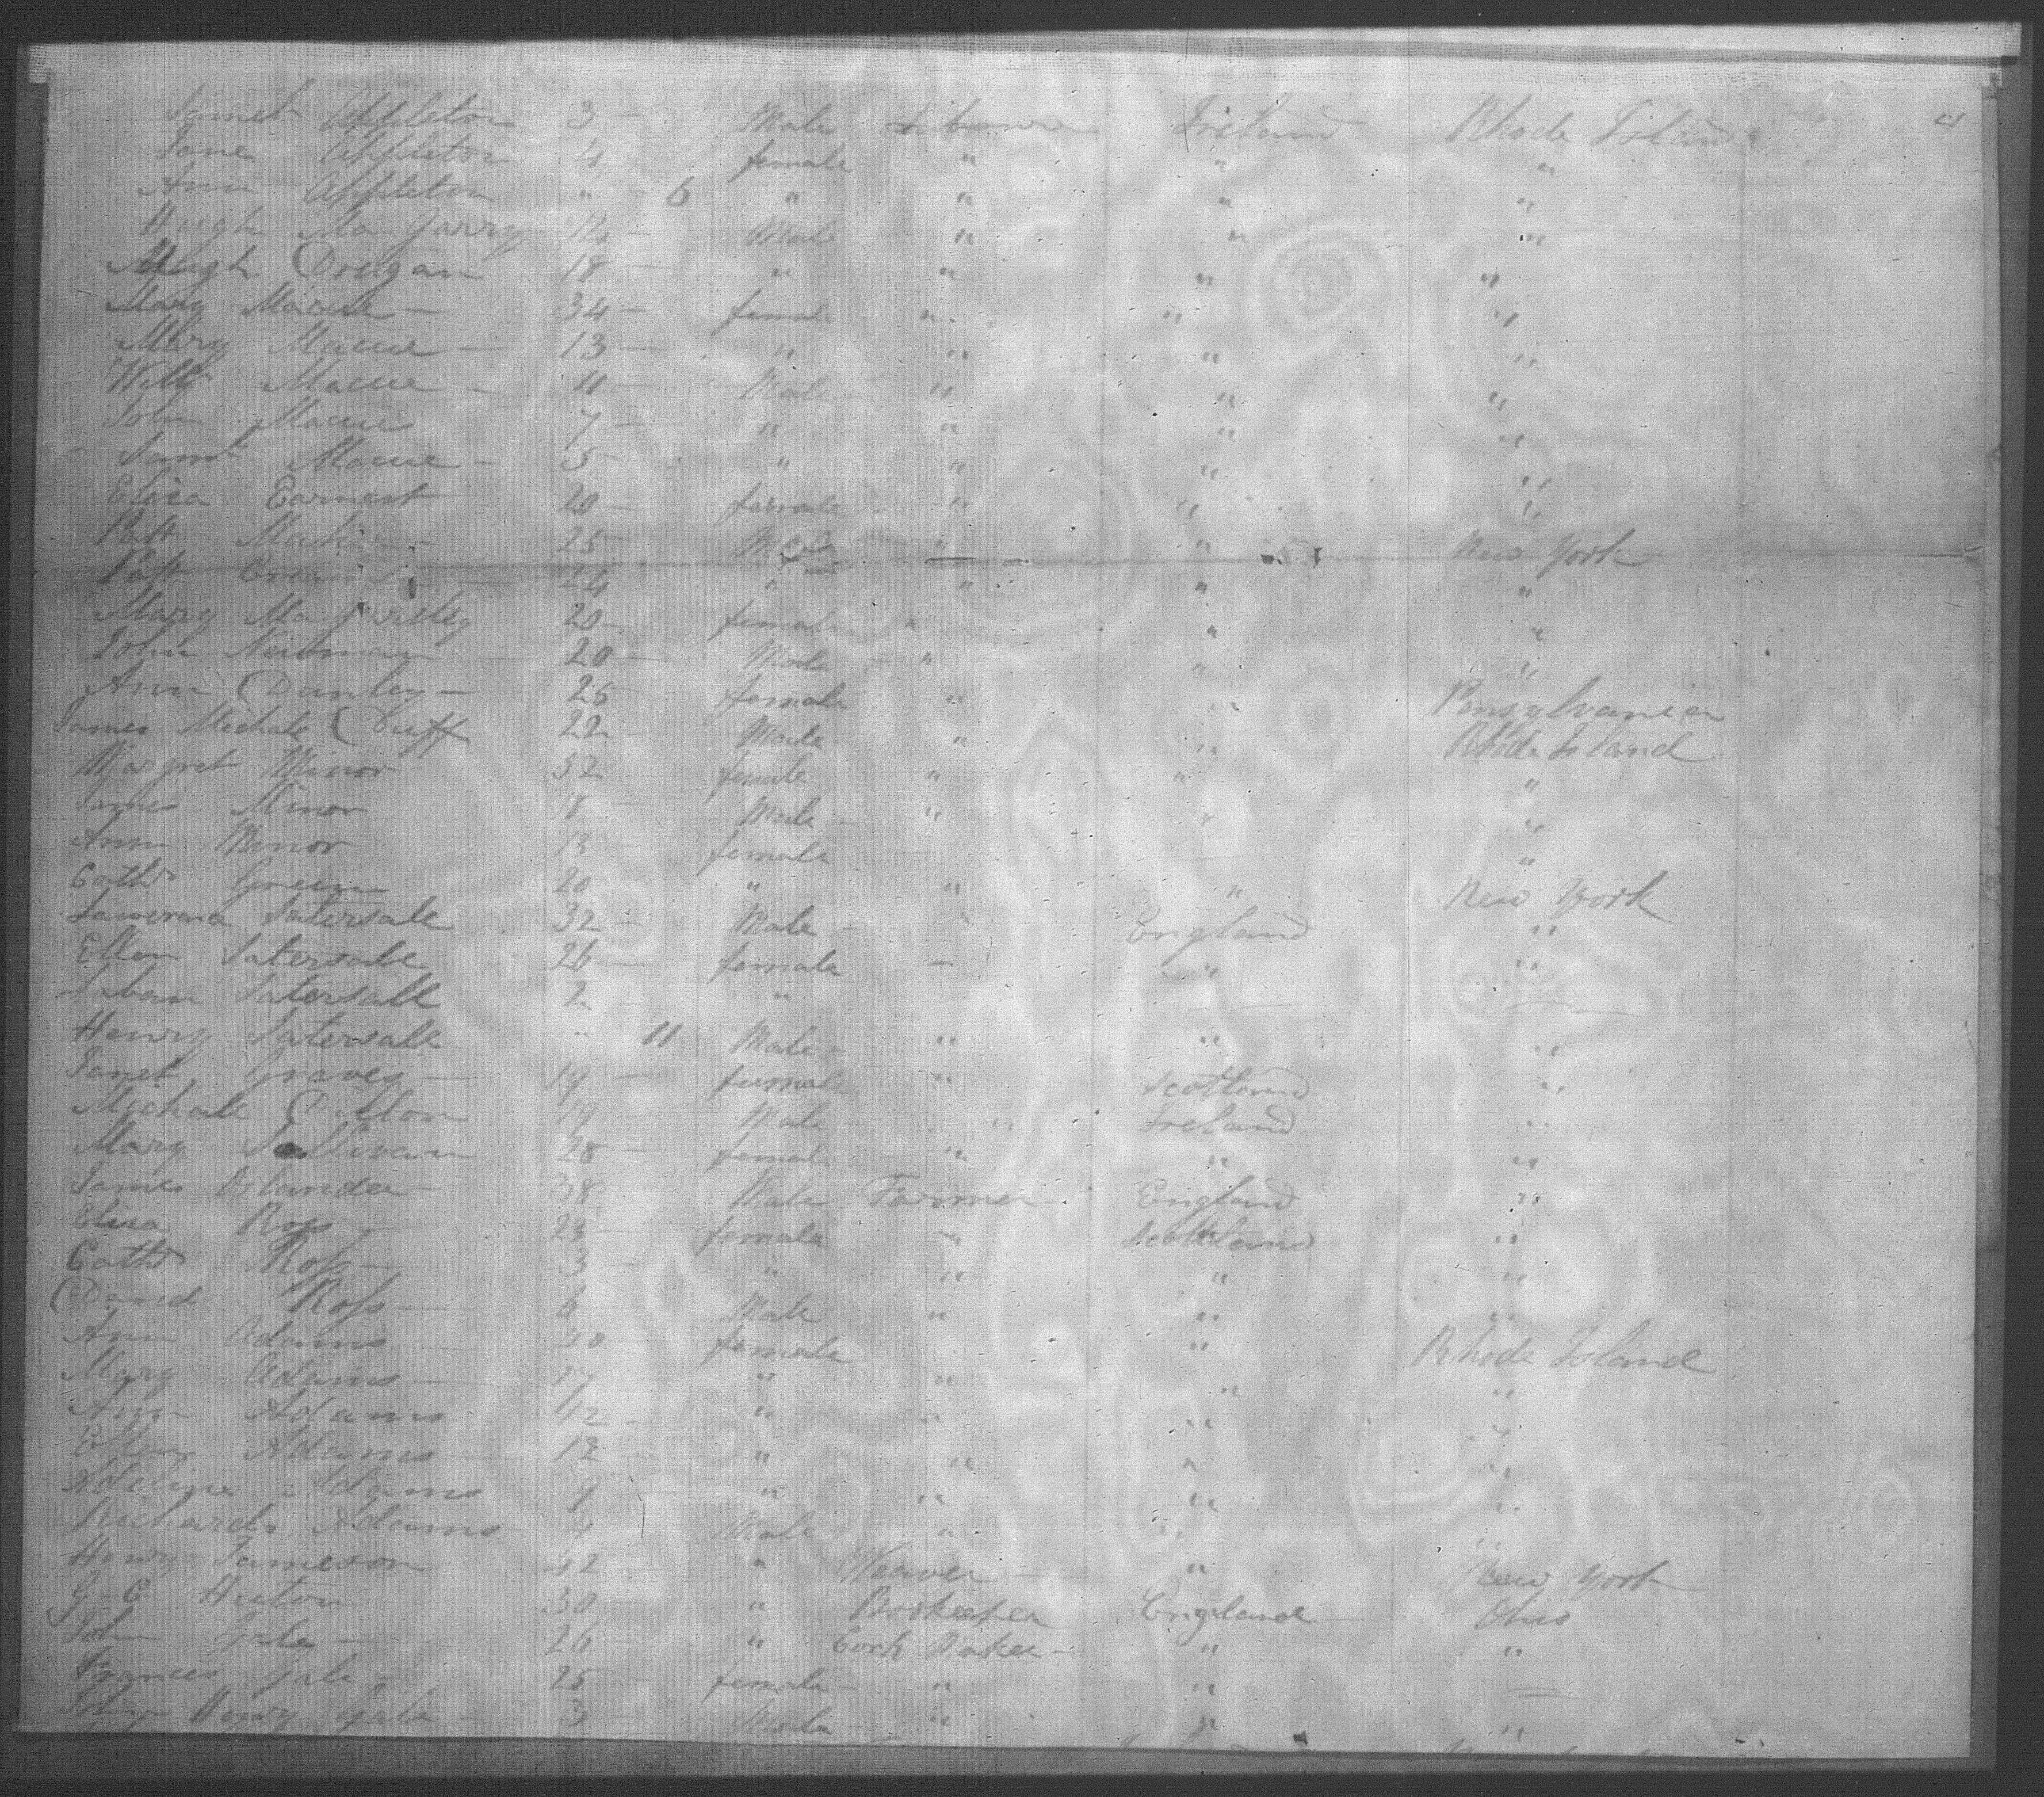 James Appleton 3 — Male Laboure Ireland Rhode Island
Jane Appleton 4 female " " "
Ann Appleton " - 6 " " " "
Hugh Ma Garry 12 — Male " " "
Hugh Drugan 18 — " " " "
Mary Macue — 34 — female " " "
Mary Macue — 13 — " " " "
Willm Macue — 11 — Male " " "
John Macue 7 — " " " "
Saml Macue — 5 - " " " "
Eliza Earnest 20 — female " " "
Patt 25 Male " " New York
Patt 24 " " " "
Mary Ma 20 — female " " "
John Newman 20 — Male " " "
Ann Dunley — 25 female " " Pensylvania
James Michale Duff 22 Male " " Rhode Island
Margret Minor 32 female " " "
James Minor 18 Male " " "
Ann Minor 13 — female — "
Cathe Green 20 " " " New York
Satersale 32 — Male - " England "
Ellen Satersale 26 — female — " "
Laban Satersall 2 - "
Henry Satersale " 11 Male - " " "
Janet Graves — 19 — female " Scotland "
Michale Dillon 19 Male " Ireland "
Mary Sullivan 28 — female " " "
James 38 Male Farmer England "
Eliza Ross — 23 — female " Scotland "
Cathe Ross — 3 — " " " "
David Ross — 6 Male " " "
Ann Adams 40 — female " Rhode Island
Mary Adams — 17 " " " "
Ann Adams 12 - " " " "
Ellen Adams 12 " " " "
Adeline Adams 9 " " " "
Richards Adams 4 Male " " "
Henry Jameson 42 " Weaver — " New York
G - C Huton 30 " Bookeeper England — Ohio
John Gale — 26 " Cork Maker — " "
Frances Gale - 25 — female — " "
John Henry Gale — 3 — Male - " " "